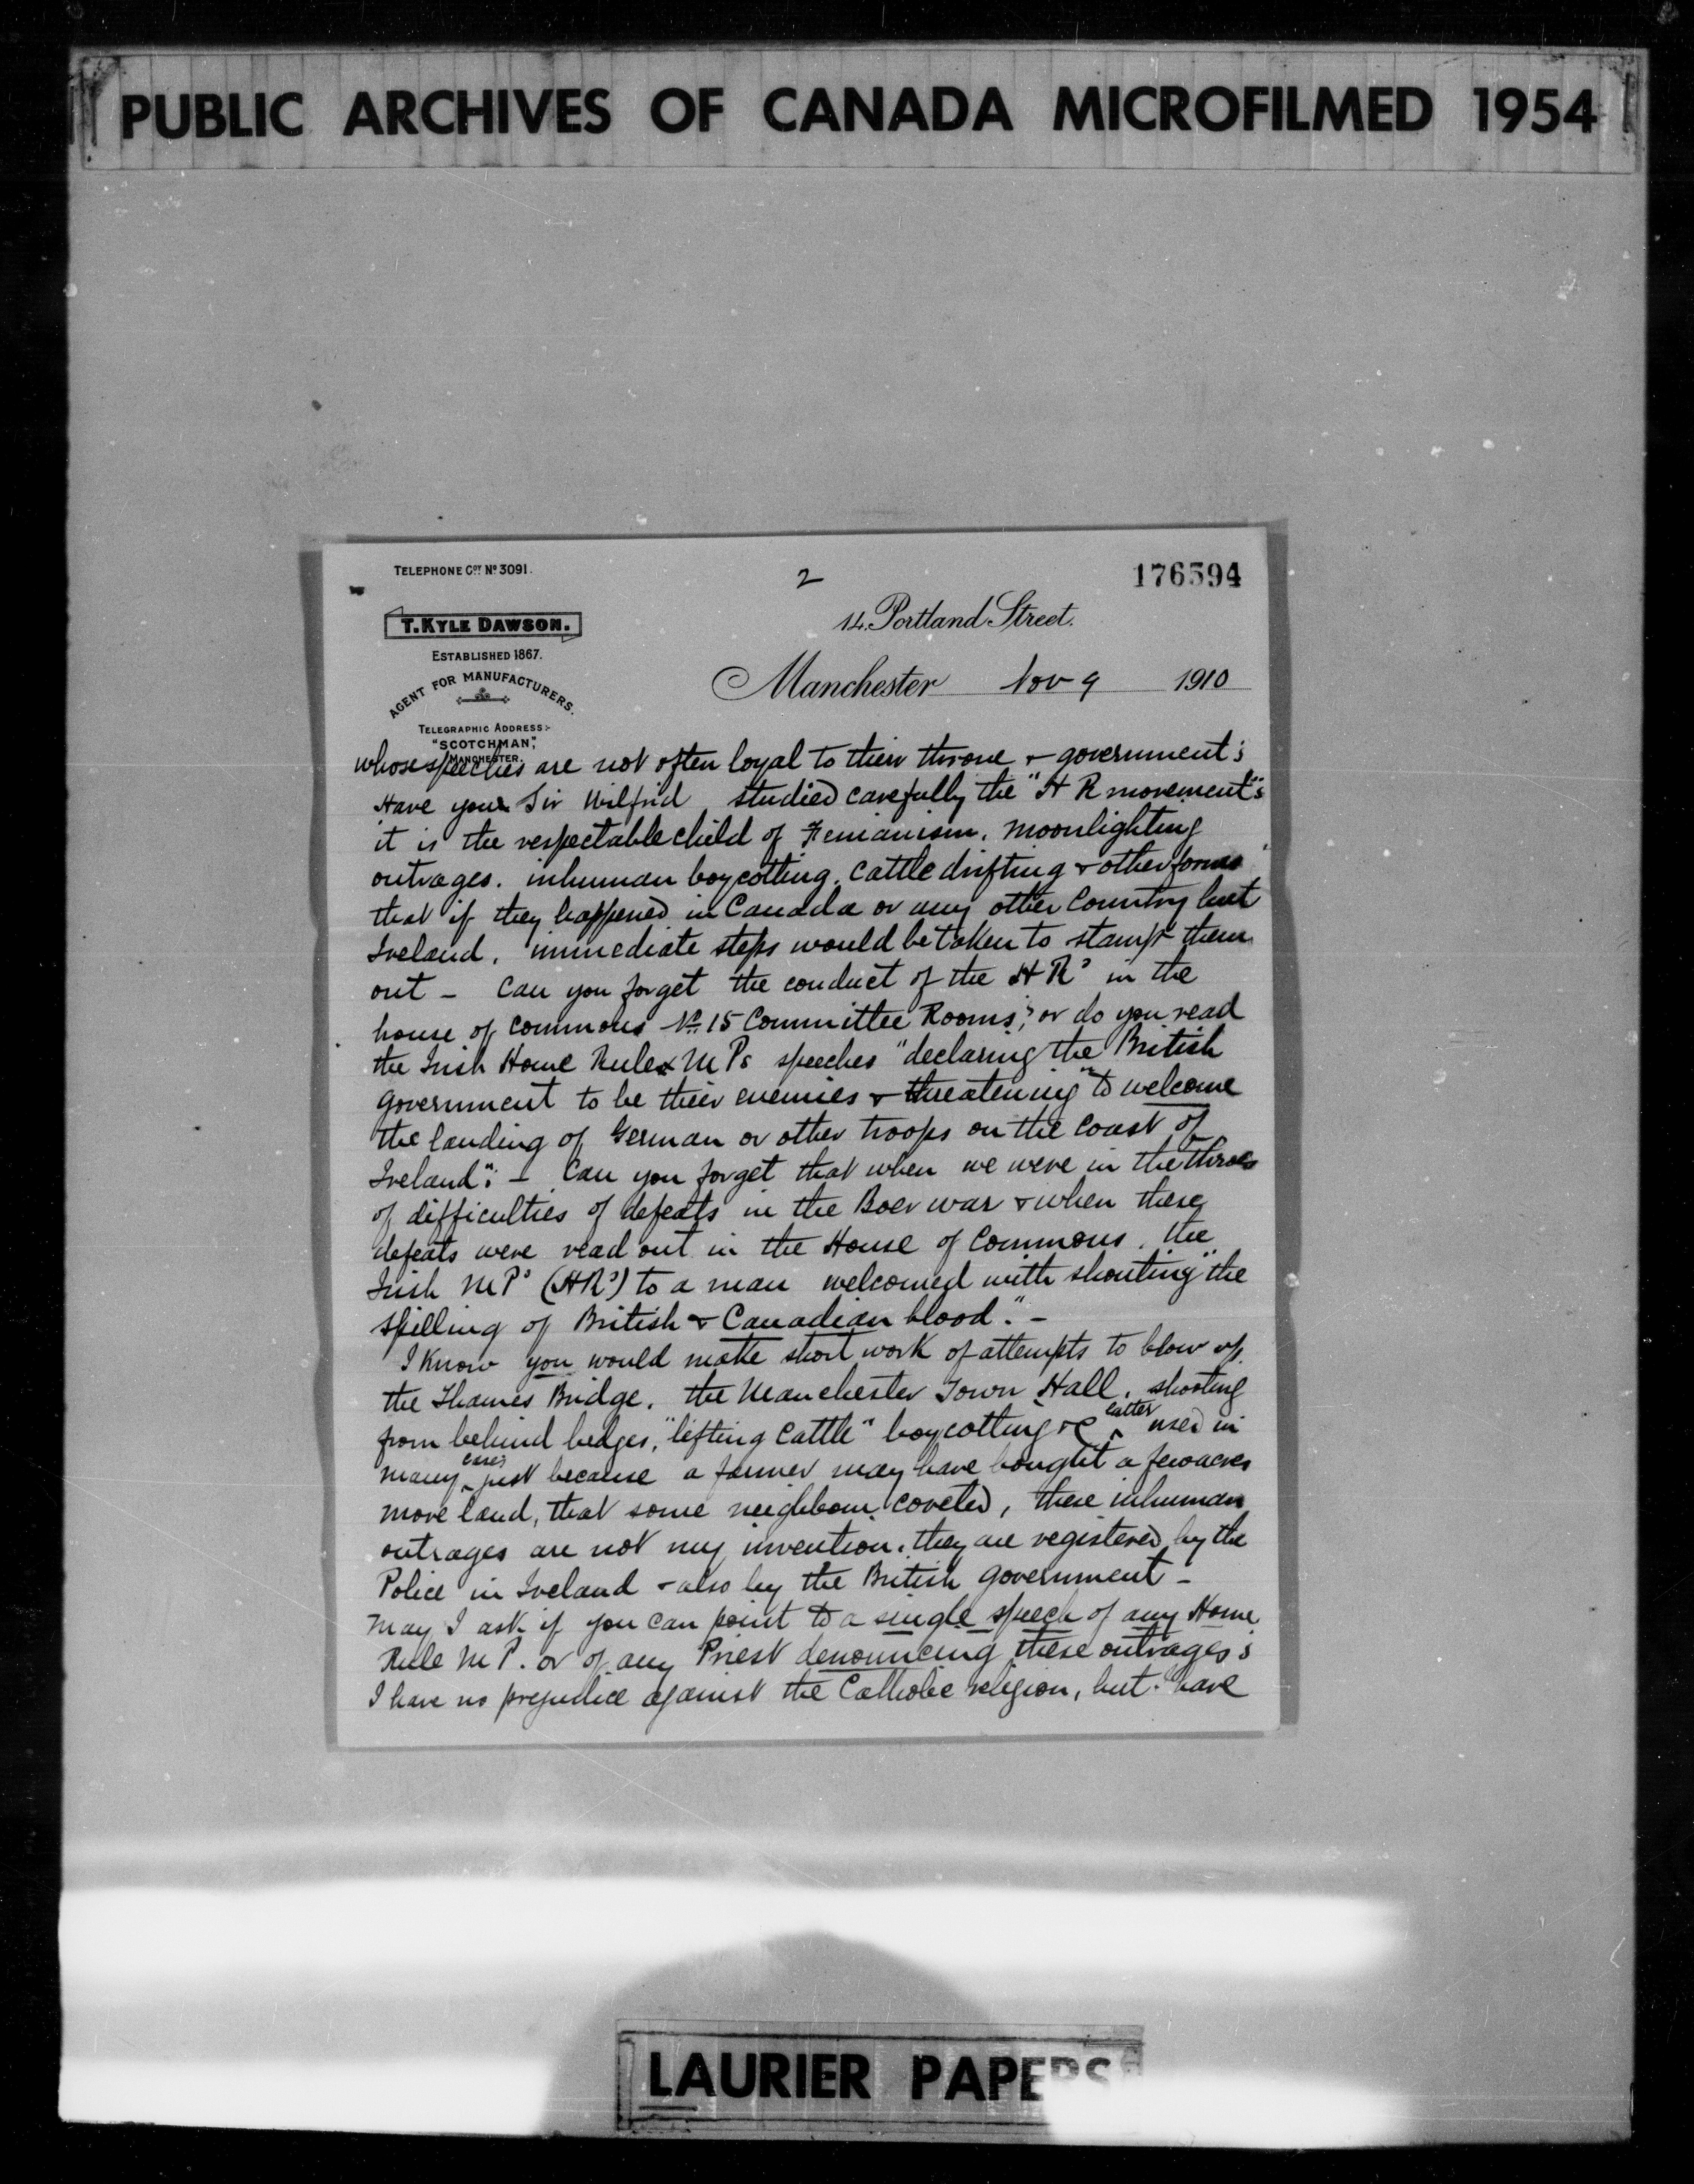 PUBLIC ARCHIVES OF CANADA MICROFILMED 1954
TELEPHONE COY. NO 3091.
2
176594
T. KYLE DAWSON.
14. Portland Street.
ESTABLISHED 1867.
Manchester Nov 9 1910
AGENT FOR MANUFACTURERS.
TELEGRAPHIC ADDRESS:-
"SCOTCHMAN",
MANCHESTER.
whose speeches are not often loyal to their throne & government;
Have you Sir Wilfrid studied carefully the "H R movement"
it is the respectable child of Fenianism, moonlighting
outrages. inhuman boycotting, cattle drifting & other forms
that if they happened in Canada or any other Country but
Ireland, immediate steps would be taken to stamp them
out - Can you forget the conduct of the H Rs in the
house of Commons No. 15 Committee Rooms, or do you read
the Irish Home Rule M Ps speeches "declaring the British
government to be their enemies & threatening" "to welcome
the landing of German or other troops on the coast of
Ireland": - Can you forget that when we were in the throes
of difficulties of defeats in the Boer war & when these
defeats were read out in the House of Commons, the
Irish M Ps (HRs) to a man welcomed with shouting "the
spilling of British & Canadian blood". -
I know you would make short work of attempts to blow up
the Thames Bridge, the Manchester Town Hall, shooting
from behind hedges, "lifting cattle" boycotting &c latter used in
many cases just because a farmer may have bought a few acres
more land, that some neighbour coveted, these inhuman
outrages are not my invention, they are registered by the
Police in Ireland & also by the British government -
May I ask if you can point to a single speech of any Home
Rule M P. or of any Priest denouncing these outrages;
I have no prejudice against the Catholic religion, but I have
LAURIER PAPERS